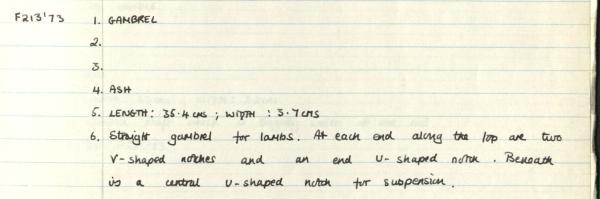 F213'73 1. GAMBREL
2.
3.
4. ASH
5. LENGTH: 35.4 CMS ; WIDTH : 3.7 CMS
6. Straight gambrel for lambs. At each end along the top are two
V-shaped notches and an end U-shaped notch. Beneath
is a central U-shaped notch for suspension.